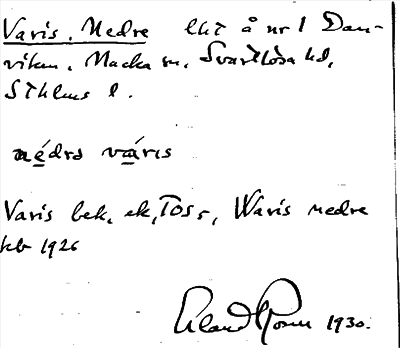 Varis, Nedre lht å nr 1 Dan-
viken, Nacka sn, Svartlösa hd,
Sthlms l.
nédrə várıs
Varis bek, ek, Tos 5, Waris nedre
kb 1926
Erland 1930.